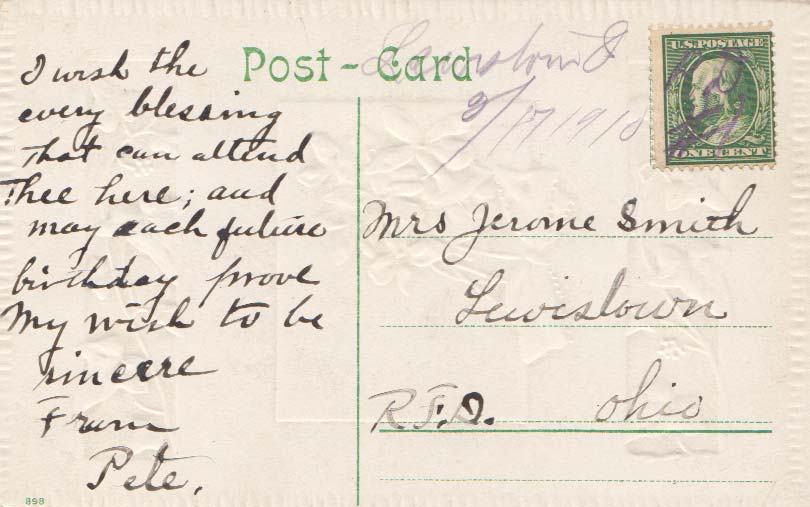 Post-Card
I wish the
every blessing
that can attend
Thee here; and
may each future
birthday prove
My wish to be
sincere
From
Pete.
898
9/17/1910
U.S. POSTAGE
ONE CENT
Mrs Jerome Smith
Lewistown
R.F.D. Ohio